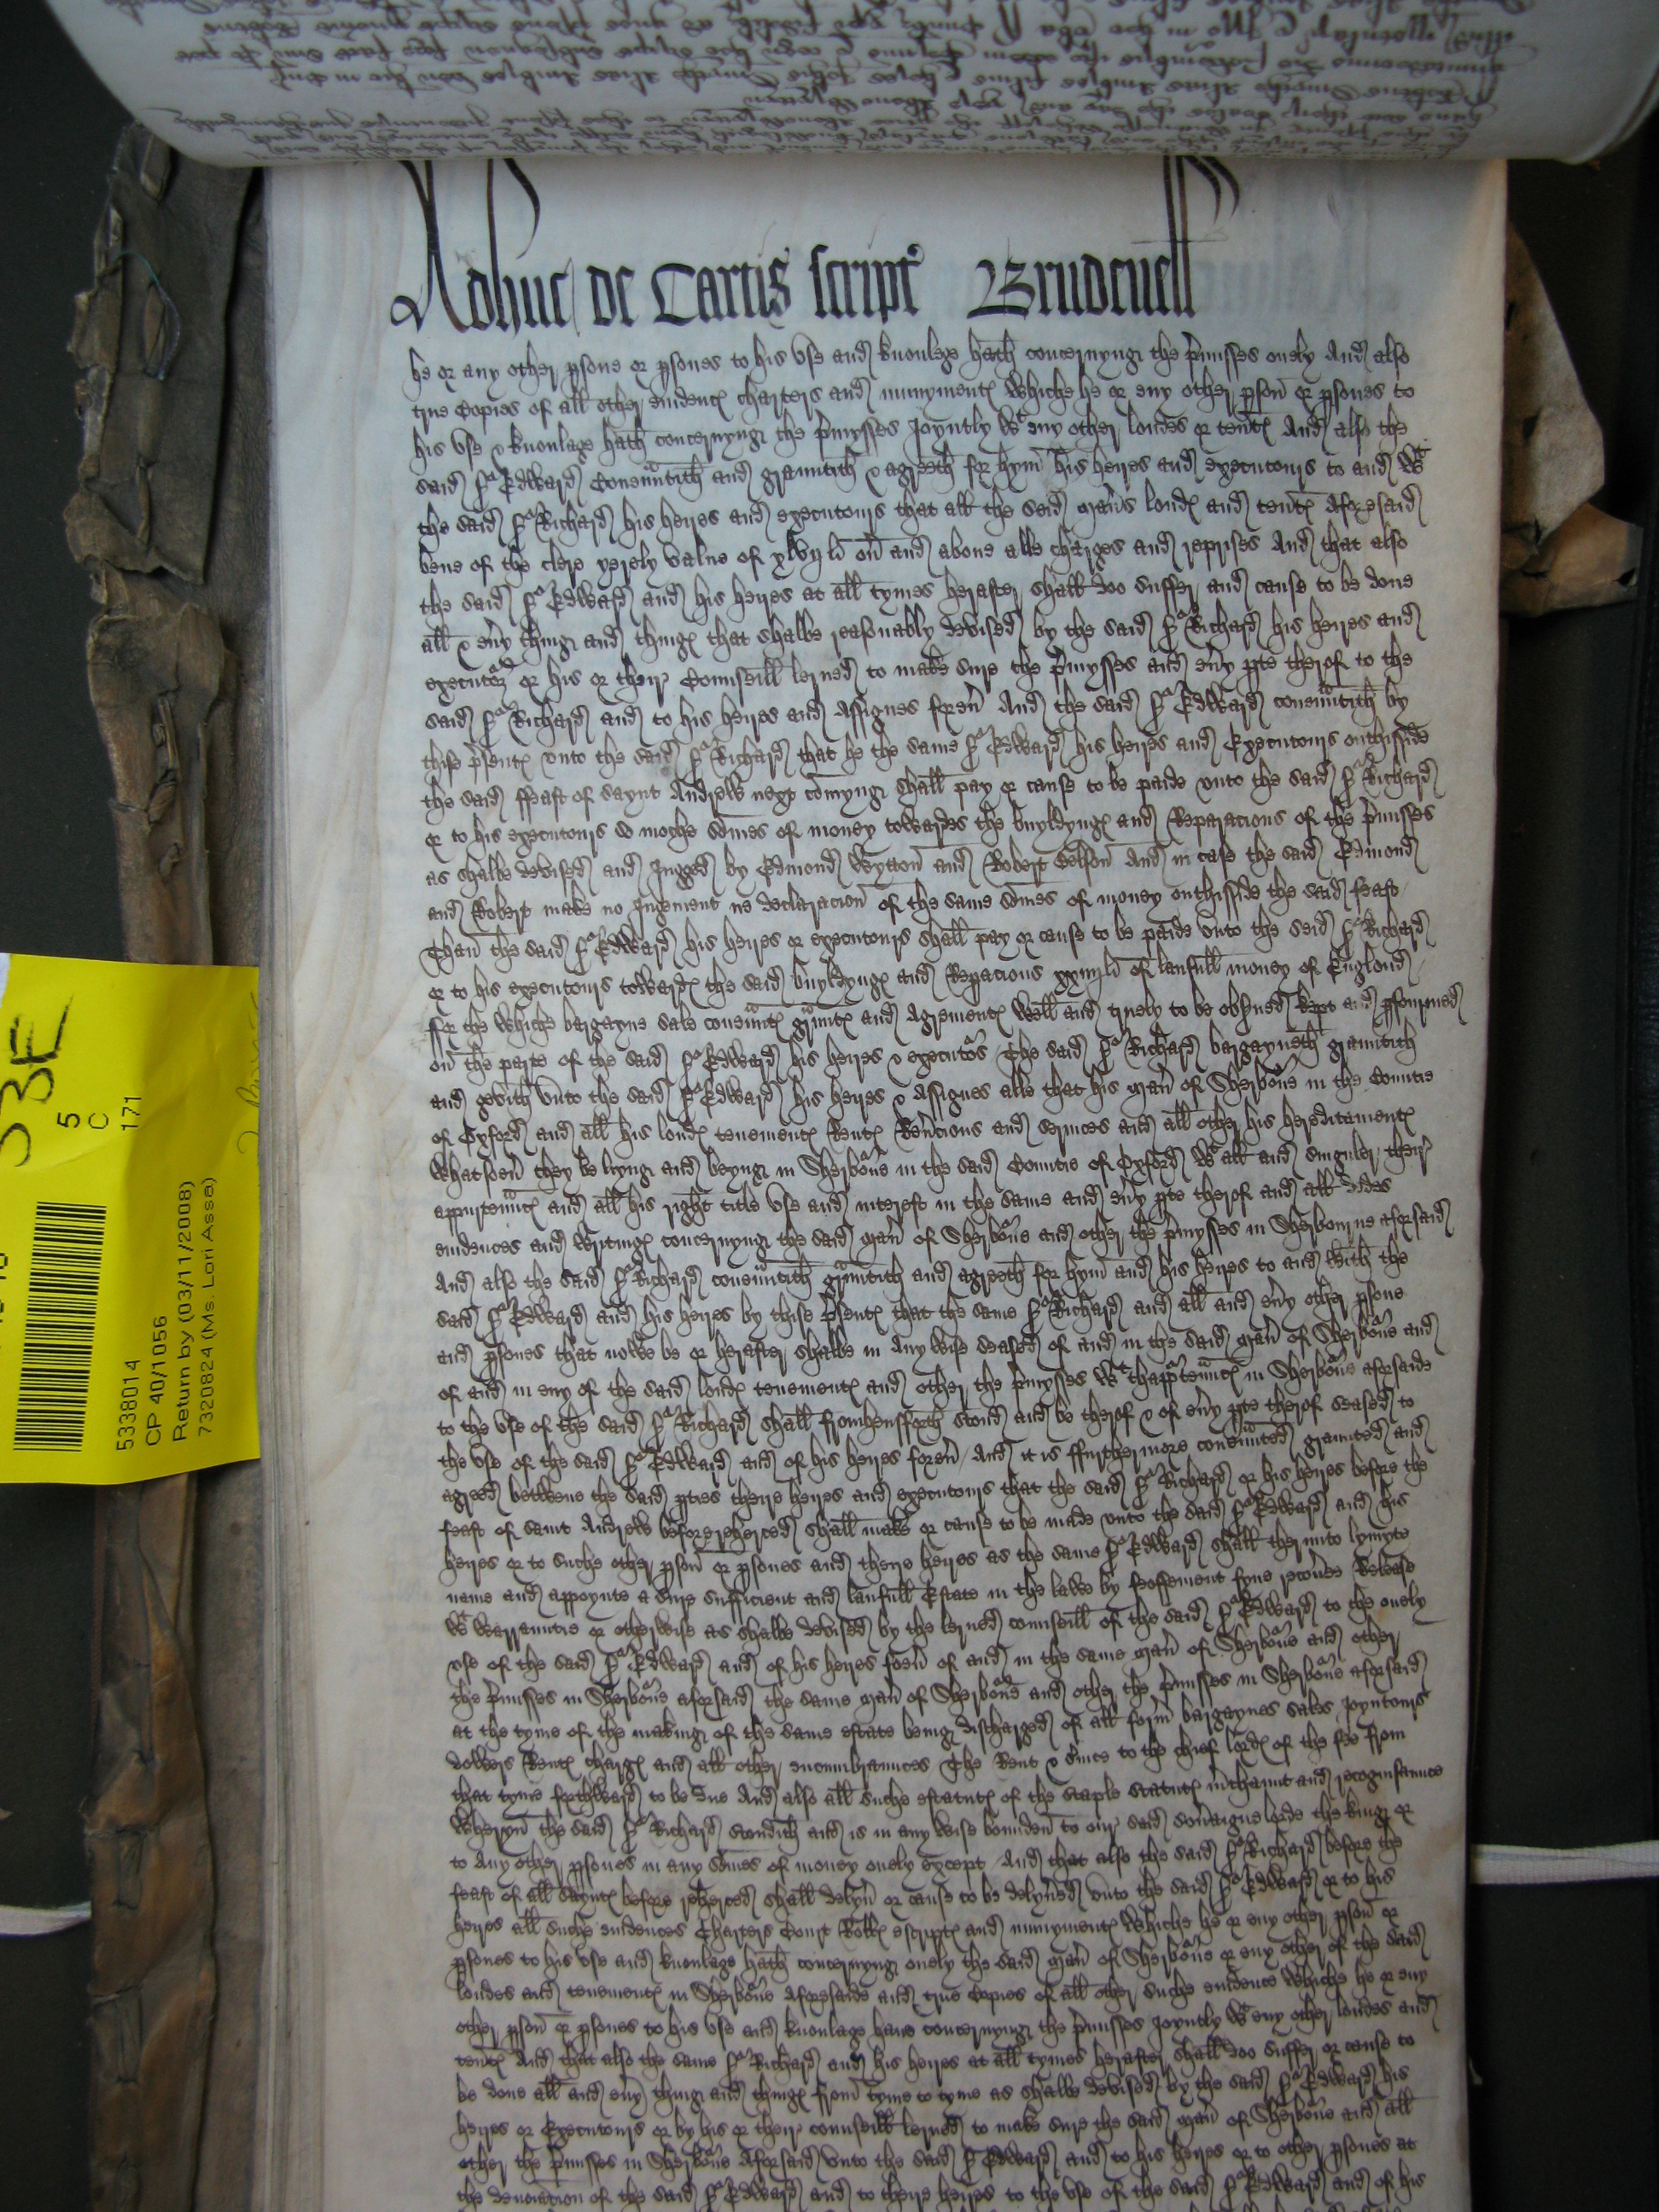 Adhuc de Cartis script Brudenell
he or any other psone or psones to his use and knoulege hath concernyng the pmisses onely And also
true Copies of all other evidentes charters and munymentes Whiche he or eny other pson or psones to
his use & knoulage hath concernyng the pmysses Joyntly Wt eny other londes or tentes And also the
said Sr Edward Covenntith and grauntith & agreeth for hym his heires and executours to and Wt
the said Sr Richard his heires and executours that all the said maners londes and tentes Aforesaid
bene of the clere yerely value of xlvij li ov and above alle charges and reprises And that also
the said Sr Edward and his heires at all tymes herafter shall doo suffer and cause to be done
all & evy thing and thinges that shalbe reasonably devised by the said Sr Richard his heires and
executors or his or their Counseill lerned to make sure the pmysses and evy pte therof to the
said Sr Richard and to his heires and Assignes forev And the said Sr Edward covenntith by
thise psentes unto the said Sr Richard that he the same Sr Edward his heires and Executours onthisside
the said ffeast of saynt Andrew next comyng shall pay or cause to be paide unto the said Sr Richard
or to his executours so moche somes of money towardes the buyldynges and Reparacions of the pmisses
as shalbe devised and Juged by Edmond and Robert And in case the said Edmond
and Robert make no Jugement ne declaracion of the same somes of money onthisside the said feast
Than the said Sr Edward his heires or executours shall pay or cause to be paide unto the said Sr Richard
or to his executours towardes the said buyldynges and Repacions li of laufull money of Englond
ffor the Whiche bargayne sale covenntes grauntes and Agrementes Well and truely to be obsved kept and pfourmed
on the parte of the said Sr Edward his heires & executors The said Sr Richard bargayneth grauntith
and gevith unto the said Sr Edward his heires & Assignes alle that his maner of Sherborne in the Countie
of Oxford and all his londes tenementes Rentes Revcions and services and all other his hereditamentes
Whatsoev they be lyyng and beyng in Sherborne in the said Countie of Oxford Wt all and singuler their
appurtenntes and all his right title use and interest in the same and evy pte therof and all dedes
evidences and writinges concernyng the said maner of Sherborne and other the pmysses in Sherbourne aforsaid
And also the said Sr Richard covenntith grauntith and agreeth for hym and his heires to and With the
said Sr Edward and his heires by thise psentes that the same Sr Richard and all and evy other psone
and psones that nowe be or herafter shalbe in any wise seased of and in the said maner of Sherborne and
of and in eny of the said londes tenementes and other the pmysses Wt thappurtenntes in Sherborne aforsaide
to the use of the said Sr Richard shall fromhensfforth stond and be therof & of evy pte therof seased to
the use of the said Sr Edward and of his heires forev And it is ffurthermore covennted graunted and
agreed betwene the said pties theire heires and executours that the said Sr Richard or his heires before the
feast of saint Andrew beforeherced shall make or cause to be made unto the said Sr Edward and his
heires or to suche other pson or psones and theire heires as the same Sr Edward shall therunto lymyte
name and appoynte a sure sufficient and laufull Estate in the lawe by feoffement fyne recove Release
Wt Warrauntie or otherwise as shalbe devised by the lerned counseill of the said Sr Edward to the onely
use of the said Sr Edward and of his heires forev of and in the same maner of Sherborne and other
the pmisses in Sherborne aforsaid the same maner of Sherborne and other the pmisses in Sherborne aforsaid
at the tyme of the making of the same estate being discharged of all form bargaynes sales Joyntours
dowers Rentes charges and all other encumbraunces The Rent & svice to the chief lordes of the fee from
that tyme forthward to be due And also all suche estatutes of the staple statutes mchaunt and recognisaunce
Wheryn the said Sr Richard stondith and is in any wise bounden to our said sovaigne lorde the king or
to any other psones in any somes of money onely except And that also the said Sr Richard before the
feast of all sayntes before reherced shall delyv or cause to be delyved unto the said Sr Edward or to his
heires all suche evidences Charters Court Rolles escriptes and munymentes Whiche he or eny other pson or
psones to his use and knoulage hath concernyng onely the said maner of Sherborne or eny other of the said
londes and tenementes in Sherborne Aforesaide and true Copies of all other suche evidence Whiche he or eny
other pson or psones to his use and knoulage have concernyng the pmisses Joyntly Wt eny other londes and
tentes And that also the same Sr Richard and his heires at all tymes herafter shall doo suffer or cause to
be done all and evy thing and thinges from tyme to tyme as shalbe devised by the said Sr Edward his
heires or Executours or by his or their counseill lerned to make sure the said maner of Sherborne and all
other the pmisses in Sherborne Aforsaid unto the said Sr Edward and to his heires or to other psones at
the denoiation of the said Sr Edward and to theire heires to the use of the said Sr Edward and of his
33E
5
C
171
5338014
CP 40/1056
Return by (03/11/2008)
7320824 (Ms. Lori Assa)